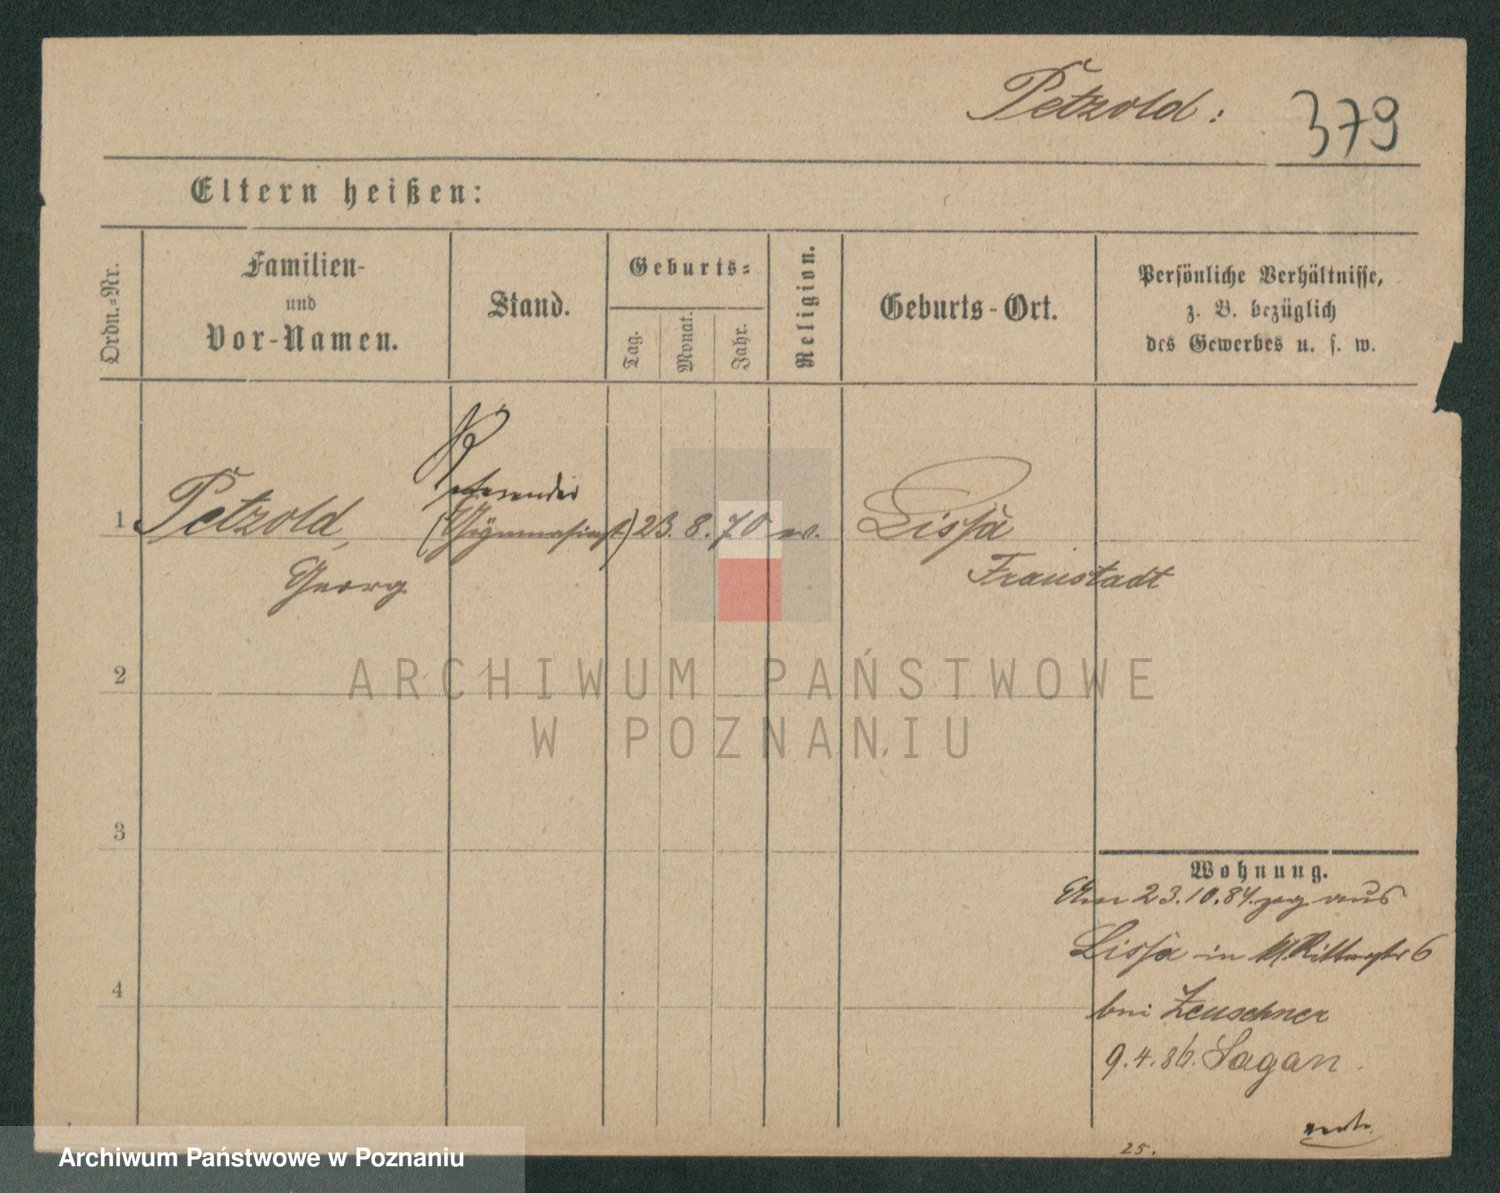 Petzold: 379
Eltern heißen:
Ordn.-Nr.
Familien-
und
Vor-Namen.
Stand.
Geburts-
Tag.
Monat.
Jahr.
Religion.
Geburts-Ort.
Persönliche Verhältnisse,
z. B. bezüglich
des Gewerbes u. s. w.
Referendar
1 Petzold, (Gymnasiast) 23. 8. 70 ev. Lissa
Georg Fraustadt
2
ARCHIWUM PAŃSTWOWE
W POZNANIU
3
Wohnung.
Am 23.10.84. zog aus
Lissa in Kl. Ritterstr 6
4
bei Zeuschner
9.4.86. Sagan.
25.
Archiwum Państwowe w Poznaniu